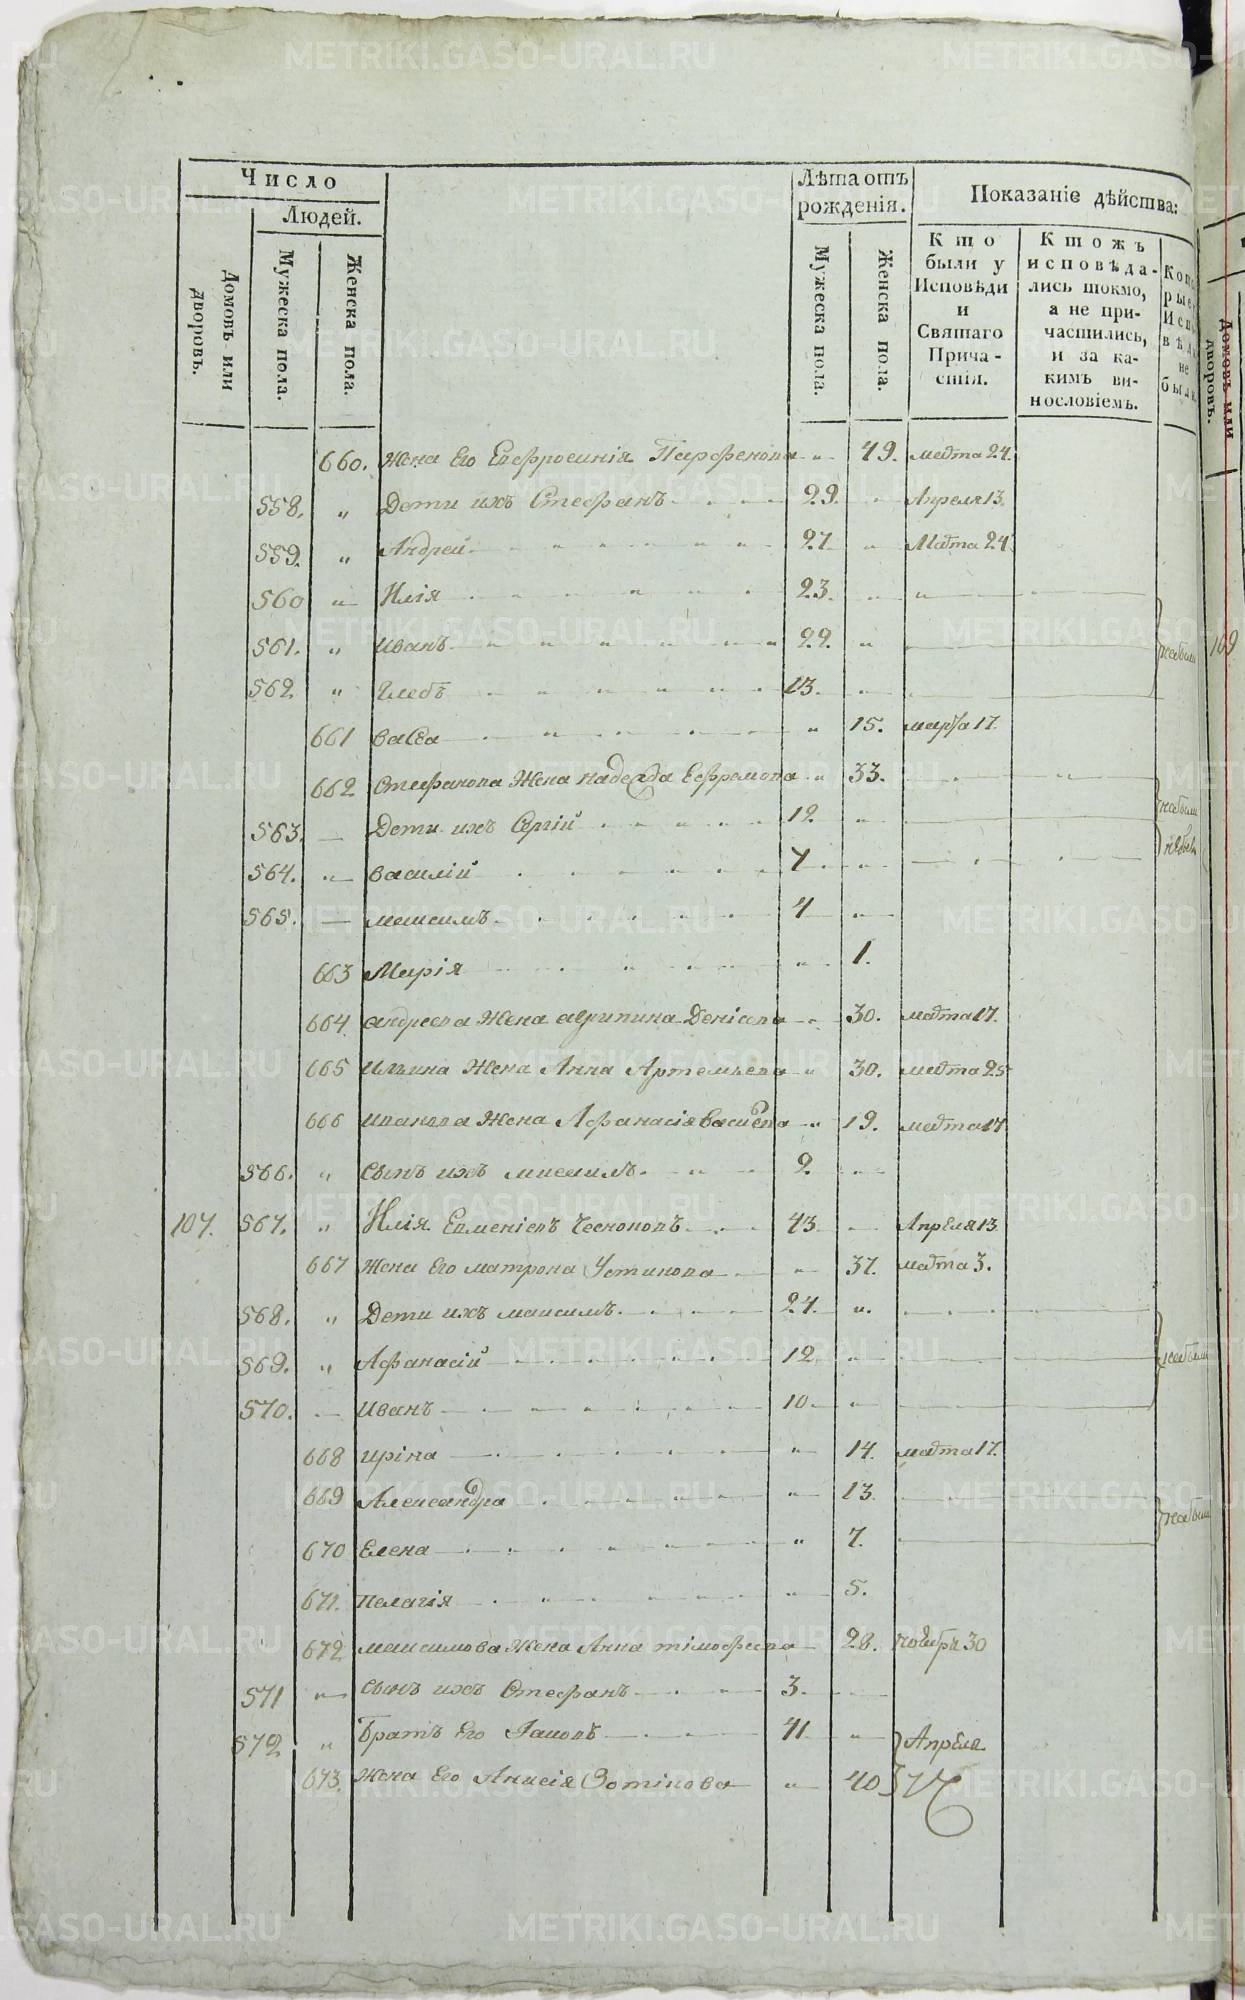 Число
Людей.
Домовъ или дворовъ.
Мужеска пола.
Женска пола.
Лѣта отъ рожденія.
Мужеска пола.
Женска пола.
Показаніе дѣйства:
Кто были у Исповѣди и Святаго Причастія.
Ктожъ исповѣдались токмо, а не причастились, и за какимъ винословіемъ.
660. Жена Его Евфросинія Парфенова „ 49. Марта 24.
558. „ Дети ихъ Стефанъ 29. „ Апреля 13.
559. „ Андрей 27. „ Марта 24.
560 „ Илія 23. „ „
561. „ Иванъ 22. „ небыли
562. „ Глебъ 13. „
661 Васса „ 15. марта 17.
662 Стефанова Жена надежда Ефремова „ 33. небыли
563. — Дети ихъ Сергій 12. „
564. „ Василій 7 „
565. — максимъ 4 „
663 Марія „ 1.
664. андреева Жена агрипина Денісова „ 30. марта 17.
665 Ильина Жена Анна Артемьева „ 30. марта 25
666 иванова Жена Афанасія Васильева „ 19. марта 17
566. „ Сынъ ихъ максимъ 2. „
107. 567. „ Илія Евменіевъ Чесноковъ 43. Апреля 13.
667 Жена Его матрона Устинова „ 37. марта 3.
568. „ Дети ихъ максимъ 24. „
569. „ Афанасій 12 „ небыли
570. — Иванъ 10. „
668 иріна „ 14. марта 17.
669 Александра „ 13. небыли
670 Елена „ 7.
671. Пелагія „ 5.
672 максимова Жена Анна тімофеева 28. ноября 30
571 „ Сынъ ихъ Стефанъ 3.
572 „ Братъ Его Іаковъ 41 „ Апреля
673. Жена Его Анисія Зотікова „ 40 17
Домовъ или дворовъ.
109
METRIKI.GASO-URAL.RU